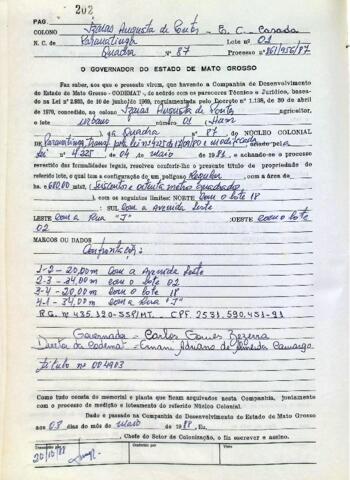 202
PAG.
COLONO Izaias Augusta de Couto - E. C. Casado
N. C. de Paranatinga Lote nº 01
Quadra Nº 87 Processo nº 861/256/87
O GOVERNADOR DO ESTADO DE MATO GROSSO
Faz saber, aos que o presente virem, que havendo a Companhia de Desenvolvimento
do Estado de Mato Grosso - CODEMAT -, de acordo com os pareceres Técnico e Jurídico, baseados
na Lei nº 2.935, de 10 de junho de 1969, regulamentada pelo Decreto nº 1.138, de 30 de abril
de 1970, concedido, ao colono Izaias Augusta de Couto agricultor,
o lote urbano número 01
da Quadra nº 87 do NÚCLEO COLONIAL
DE Paranatinga e modificada pela
lei nº 4.225 de 04 de maio de 1986, e achando-se o processo
revestido das formalidades legais, resolvem conferir-lhe o presente título de propriedade do
referido lote, o qual tem a configuração de um polígono Regular com a área de
hs. e 680,00 mts. (Seiscentos e oitenta metros quadrados)
), com os seguintes limites: NORTE com o lote 18
: SUL com a Avenida Leste
LESTE com a Rua "J" :OESTE com o lote
02
MARCOS OU DADOS
Confrontações:
1-2 - 20,00m com a Avenida Leste
2-3 - 34,00m com o lote 02
3-4 - 20,00m com o lote 18
4-1 - 34,00m com a Rua "J"
R.G. nº 435.120-SSP/MT. - CPF. 2531.590.451-91
Governador = Carlos Gomes Bezerra
da Codemat = Ernani Adriano de Almeida Camargo
título nº 004903
Como tudo consta do memorial e planta que ficam arquivados nesta Companhia, juntamente
com o processo de medição e loteamento do referido Núcleo Colonial.
Dado e passado na Companhia de Desenvolvimento do Estado de Mato Grosso
aos 03 dias do mês de maio de 1988, Eu,
, Chefe do Setor de Colonização, o fiz escrever e assino.
20/10/88
Conferido por
Visto